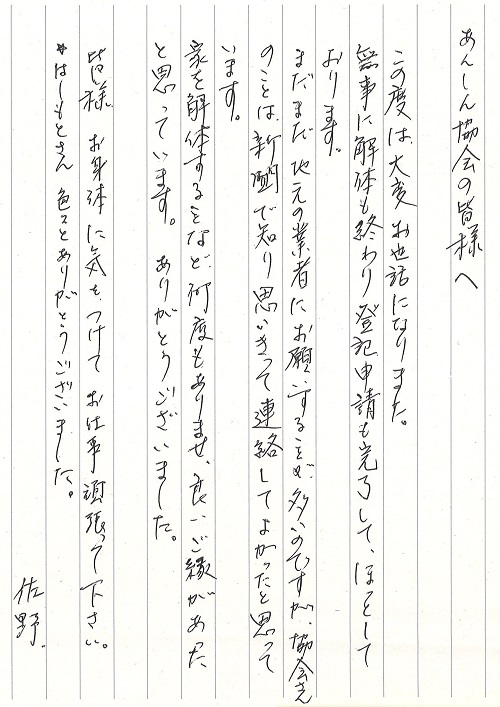 あんしん協会の皆様へ
この度は、大変お世話になりました。
無事に解体も終わり登記申請も完了して、ほっとして
おります。
まだまだ地元の業者にお願いすることが多いのですが、協会さん
のことは、新聞で知り思いきって連絡してよかったと思って
います。
家を解体することなど何度もありません、良いご縁があった
と思っています。ありがとうございました。
皆様 お身体に気をつけて お仕事頑張って下さい。
*はしもとさん 色々とありがとうございました。
佐野.